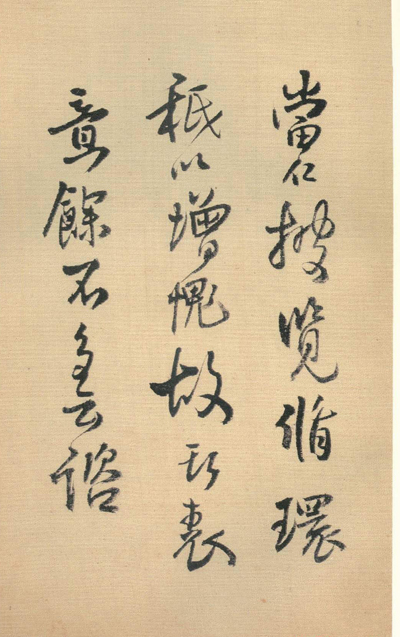 當仁披覽循環
秖以增愧故表
意餘不多云諮